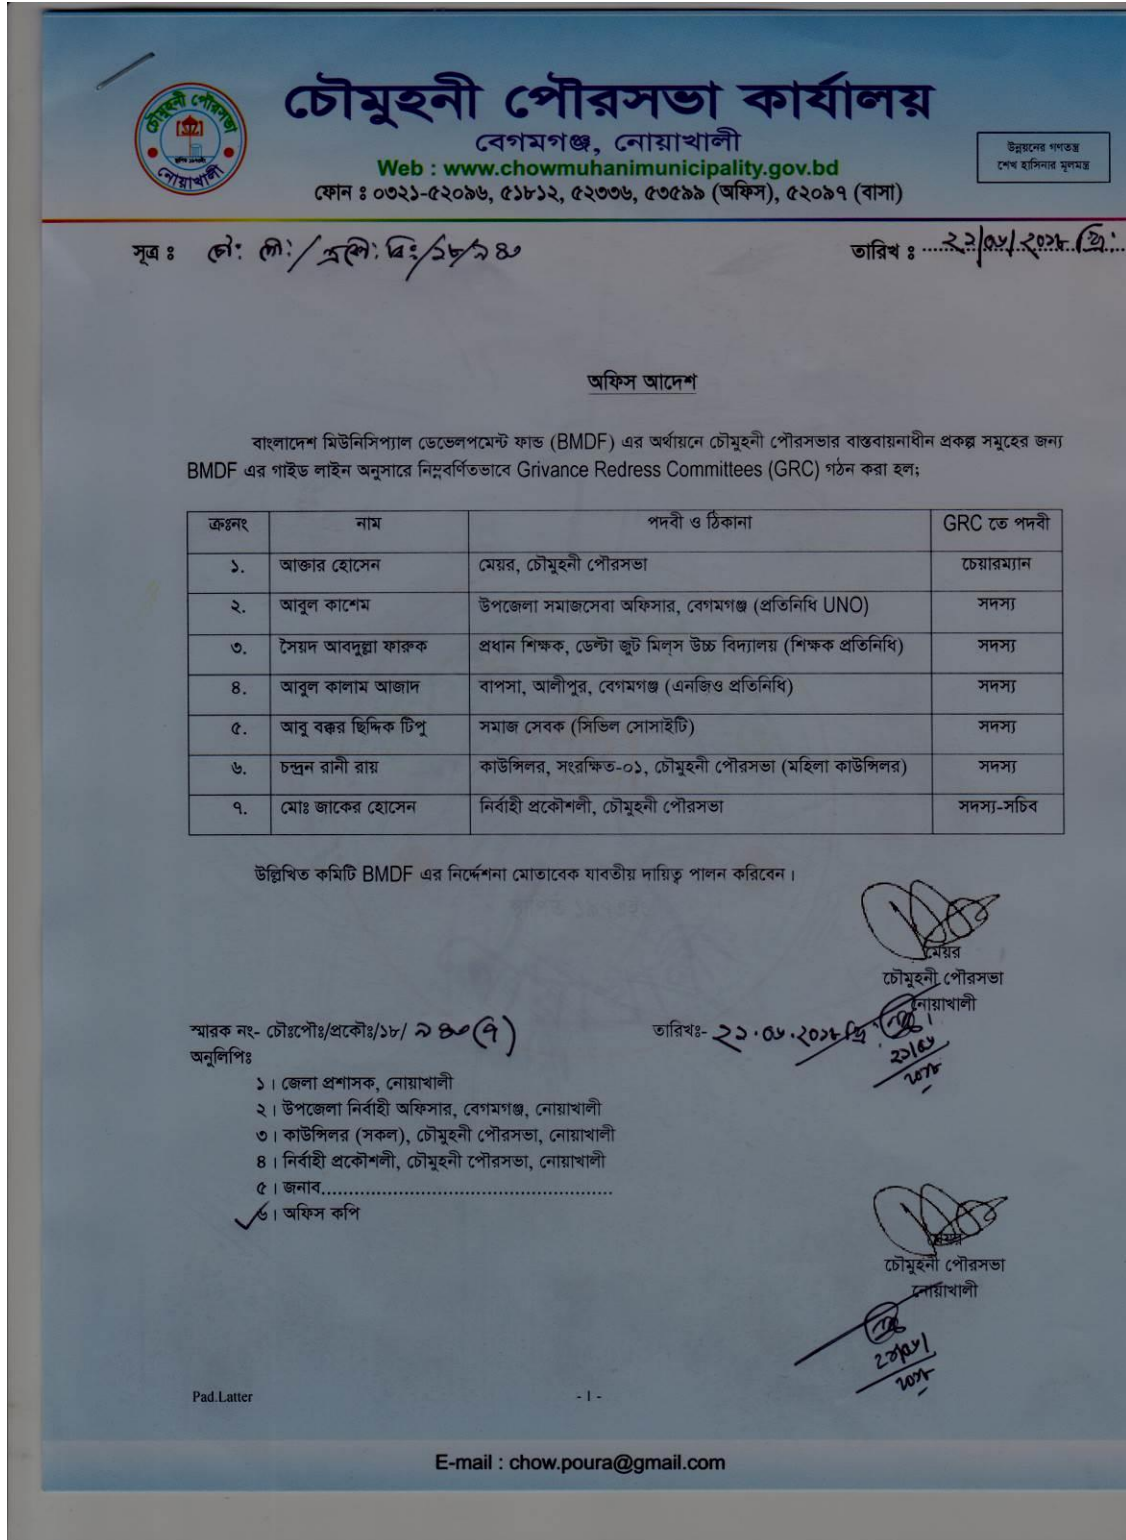 চৌমুহনী পৌরসভা
নোয়াখালী
চৌমুহনী পৌরসভা কার্যালয়
বেগমগঞ্জ, নোয়াখালী
Web : www.chowmuhanimunicipality.gov.bd
ফোন ঃ ০৩২১-৫২০৯৬, ৫১৮১২, ৫২৩৩৬, ৫৩৫৯৯ (অফিস), ৫২০৯৭ (বাসা)
উন্নয়নের গণতন্ত্র
শেখ হাসিনার মূলমন্ত্র
সূত্র ঃ চৌঃ পৌঃ/প্রকৌঃ বিঃ/১৮/৯৪০
তারিখ ঃ
অফিস আদেশ
বাংলাদেশ মিউনিসিপ্যাল ডেভেলপমেন্ট ফান্ড (BMDF) এর অর্থায়নে চৌমুহনী পৌরসভার বাস্তবায়নাধীন প্রকল্প সমুহের জন্য
BMDF এর গাইড লাইন অনুসারে নিম্নবর্ণিতভাবে Grivance Redress Committees (GRC) গঠন করা হল;
ক্রঃনং নাম পদবী ও ঠিকানা GRC তে পদবী
১. আক্তার হোসেন মেয়র, চৌমুহনী পৌরসভা চেয়ারম্যান
২. আবুল কাশেম উপজেলা সমাজসেবা অফিসার, বেগমগঞ্জ (প্রতিনিধি UNO) সদস্য
৩. সৈয়দ আবদুল্লা ফারুক প্রধান শিক্ষক, ডেল্টা জুট মিল্‌স উচ্চ বিদ্যালয় (শিক্ষক প্রতিনিধি) সদস্য
৪. আবুল কালাম আজাদ বাপসা, আলীপুর, বেগমগঞ্জ (এনজিও প্রতিনিধি) সদস্য
৫. আবু বক্কর ছিদ্দিক টিপু সমাজ সেবক (সিভিল সোসাইটি) সদস্য
৬. চন্দ্রন রানী রায় কাউন্সিলর, সংরক্ষিত-০১, চৌমুহনী পৌরসভা (মহিলা কাউন্সিলর) সদস্য
৭. মোঃ জাকের হোসেন নির্বাহী প্রকৌশলী, চৌমুহনী পৌরসভা সদস্য-সচিব
উল্লিখিত কমিটি BMDF এর নির্দ্দেশনা মোতাবেক যাবতীয় দায়িত্ব পালন করিবেন।
মেয়র
চৌমুহনী পৌরসভা
নোয়াখালী
স্মারক নং- চৌঃপৌঃ/প্রকৌঃ/১৮/ ৯৪০(৭) তারিখঃ-
অনুলিপিঃ
১। জেলা প্রশাসক, নোয়াখালী
২। উপজেলা নির্বাহী অফিসার, বেগমগঞ্জ, নোয়াখালী
৩। কাউন্সিলর (সকল), চৌমুহনী পৌরসভা, নোয়াখালী
৪। নির্বাহী প্রকৌশলী, চৌমুহনী পৌরসভা, নোয়াখালী
৫। জনাব.................................................
৬। অফিস কপি
মেয়র
চৌমুহনী পৌরসভা
নোয়াখালী
Pad.Latter - 1 -
E-mail : chow.poura@gmail.com